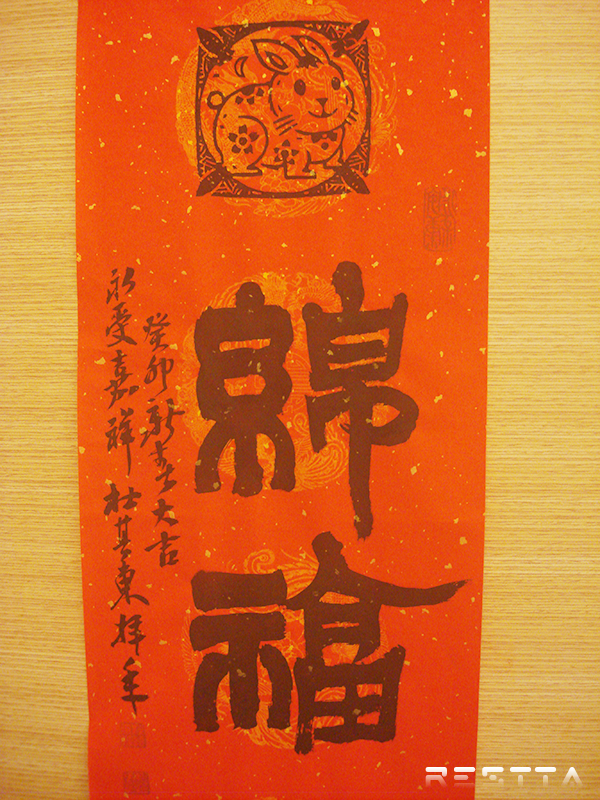 綿福
癸卯新春大吉
永受嘉祥 杜其東拜年
RESTTA